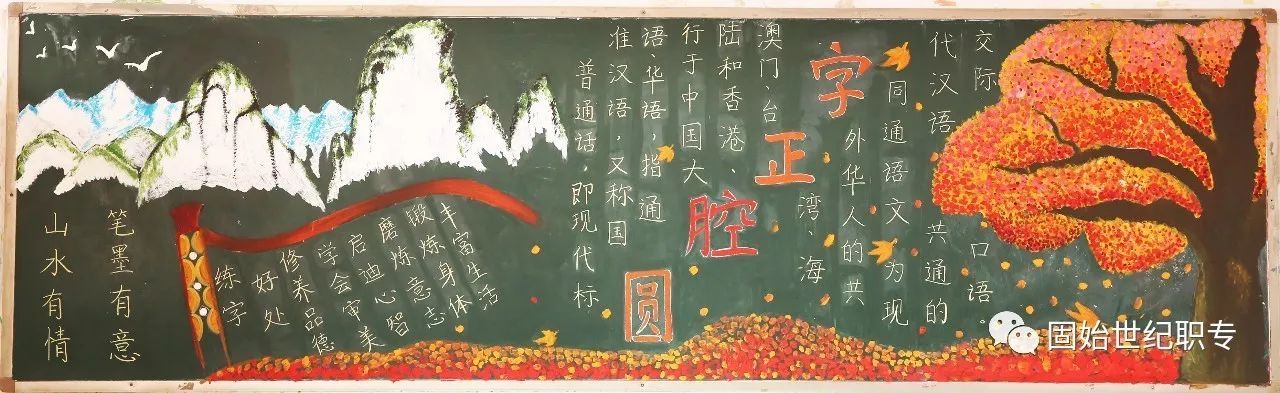 山水有情
笔墨有意
练字
好处
修养品德
学会审美
启迪心智
磨炼意志
锻炼身体
丰富生活
字正腔圆
普通话,即现代标
准汉语,又称国
语、华语,指通
行于中国大
陆和香港、
澳门、台
湾、海
外华人的共
同通语文为现
代汉语 共通的
交际 口语。
固始世纪职专